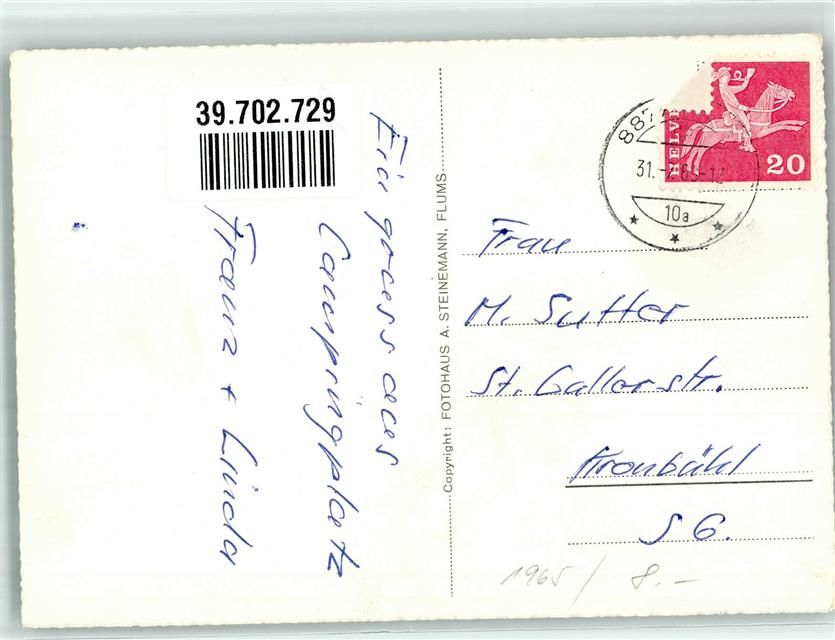 39.702.729
Ein gruss aus
Campingplatz
Franz + Linda
Copyright: FOTOHAUS A. STEINEMANN, FLUMS
HELVE
20
10a
Frau
M. Sutter
St. Gallerstr.
Kronbühl
S G.
1965 / 8.-